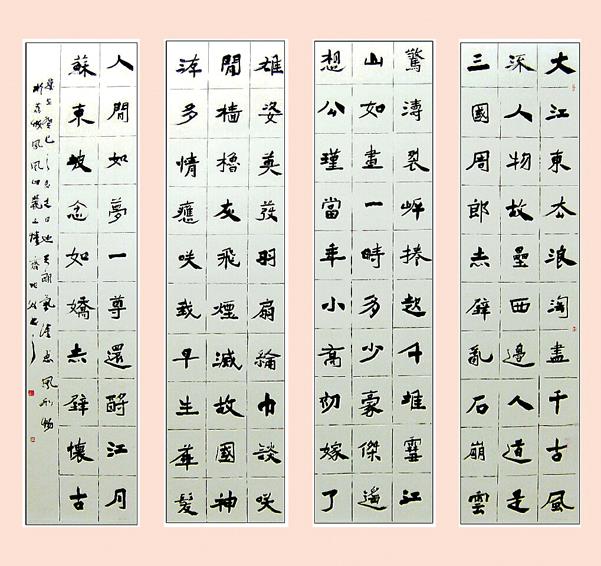 大江東去浪淘盡千古風
流人物故壘西邊人道是
三國周郎赤壁亂石崩雲
驚濤裂岸捲起千堆雪江
山如畫一時多少豪傑遙
想公瑾當年小喬初嫁了
雄姿英發羽扇綸巾談笑
間檣櫓灰飛煙滅故國神
游多情應笑我早生華髮
人間如夢一尊還酹江月
蘇東坡念奴嬌赤壁懷古